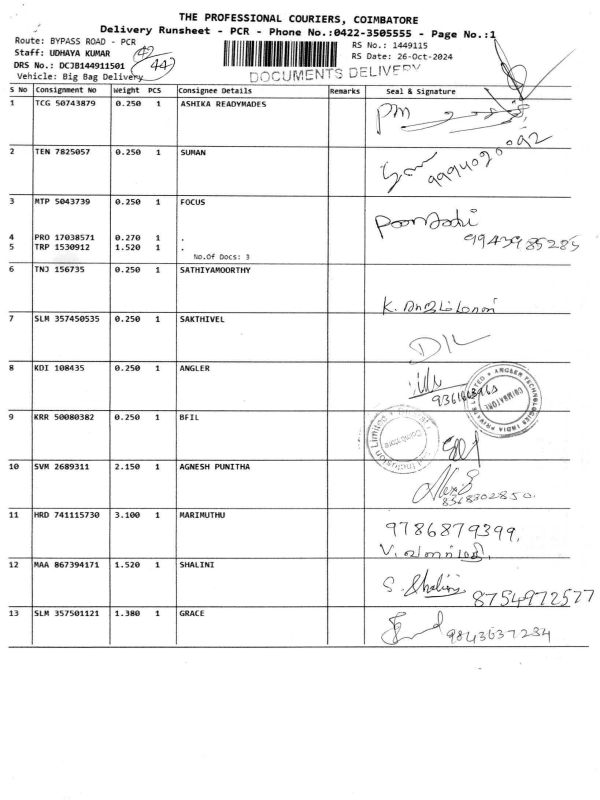 THE PROFESSIONAL COURIERS, COIMBATORE
Delivery Runsheet - PCR - Phone No.:0422-3505555 - Page No.:1
Route: BYPASS ROAD - PCR
Staff: UDHAYA KUMAR
DRS No.: DCJB144911501
Vehicle: Big Bag Delivery
42
442
RS No.: 1449115
RS Date: 26-Oct-2024
DOCUMENTS DELIVERY
S No Consignment No Weight PCS Consignee Details Remarks Seal & Signature
1 TCG 50743879 0.250 1 ASHIKA READYMADES
PM
2 TEN 7825057 0.250 1 SUMAN
3 MTP 5043739 0.250 1 FOCUS
4 PRO 17038571 0.270 1 .
9943985285
5 TRP 1530912 1.520 1 .
No.Of Docs: 3
6 TNJ 156735 0.250 1 SATHIYAMOORTHY
7 SLM 357450535 0.250 1 SAKTHIVEL
8 KDI 108435 0.250 1 ANGLER
ANGLER TECHNOLOGIES INDIA PRIVATE LIMITED
COIMBATORE
9 KRR 50080382 0.250 1 BFIL
Inclusion Limited
Coimbatore
10 SVM 2689311 2.150 1 AGNESH PUNITHA
8368302850.
11 HRD 741115730 3.100 1 MARIMUTHU
9786879399,
12 MAA 867394171 1.520 1 SHALINI
S. Shalini 8754972577
13 SLM 357501121 1.380 1 GRACE
9843637234